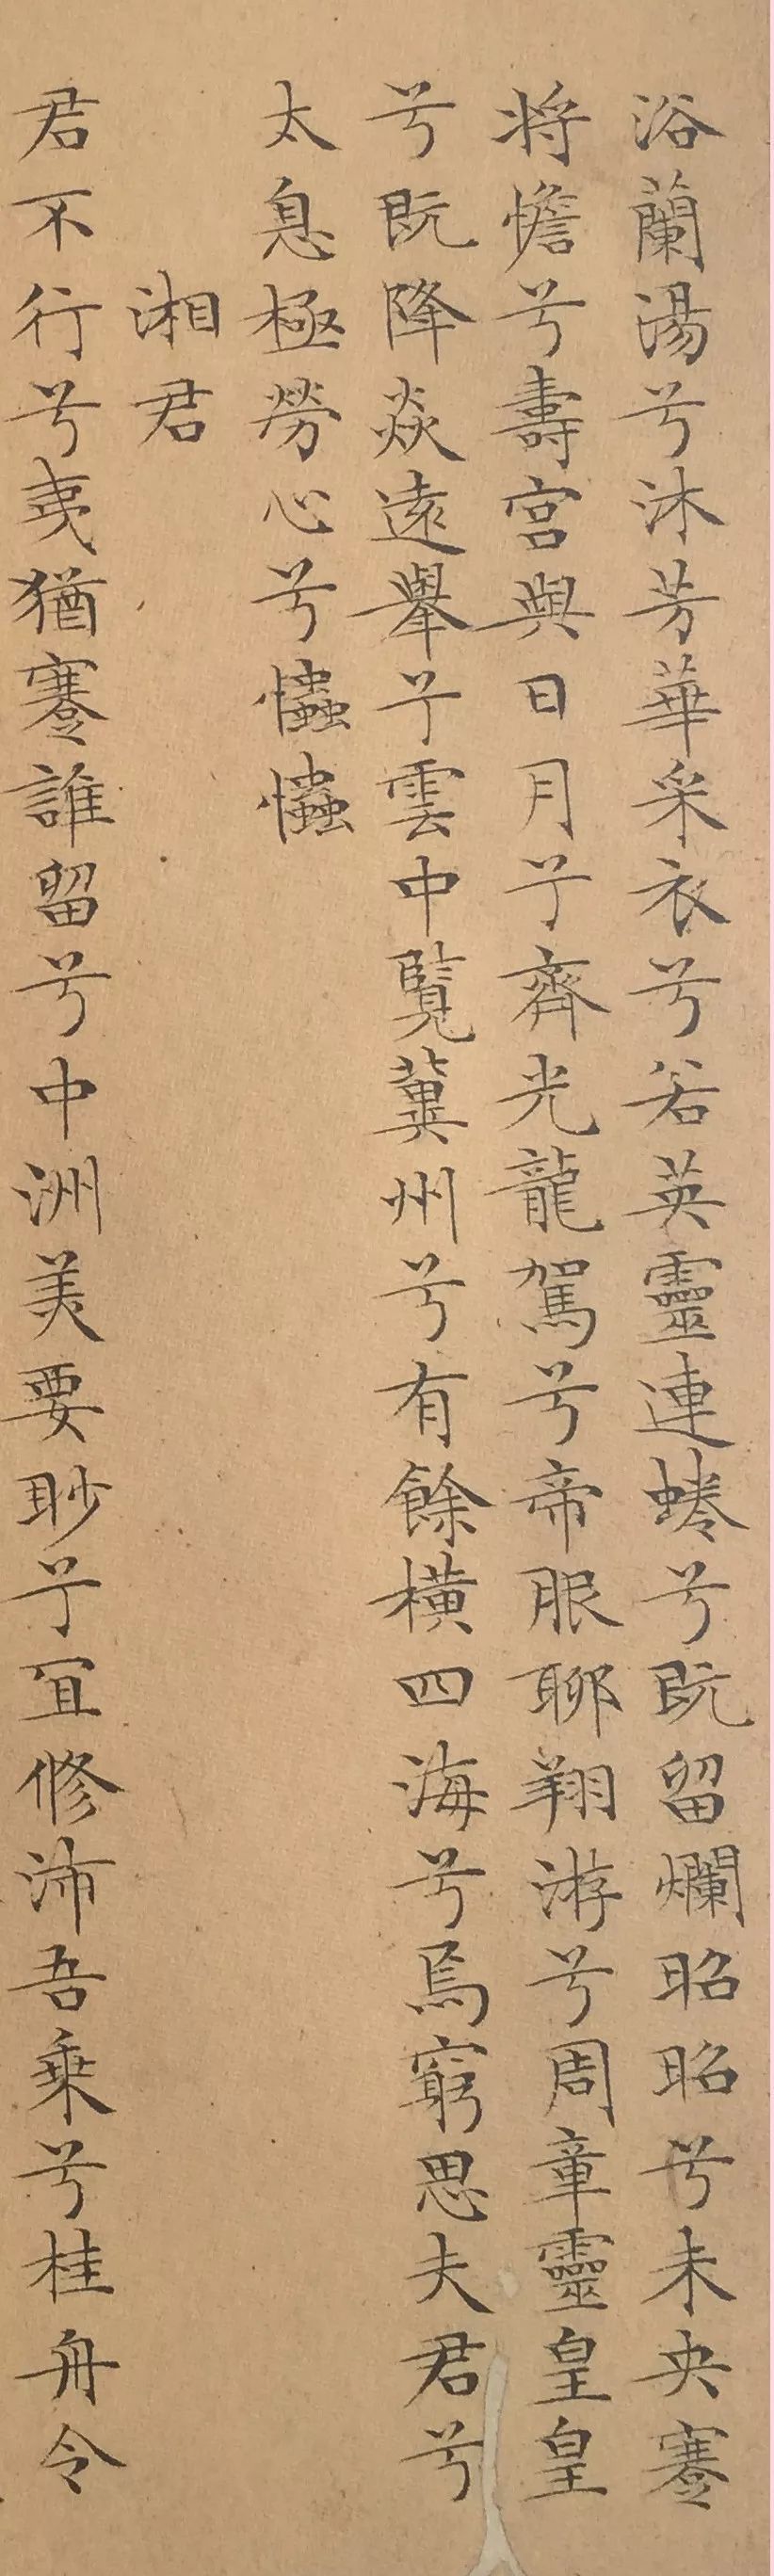 浴蘭湯兮沐芳華采衣兮若英靈連蜷兮既留爛昭昭兮未央蹇
將憺兮壽宮與日月兮齊光龍駕兮帝服聊翔游兮周章靈皇皇
兮既降猋遠舉兮雲中覽冀州兮有餘橫四海兮焉窮思夫君兮
太息極勞心兮爞爞
湘君
君不行兮夷猶蹇誰留兮中洲美要眇兮宜修沛吾乘兮桂舟令